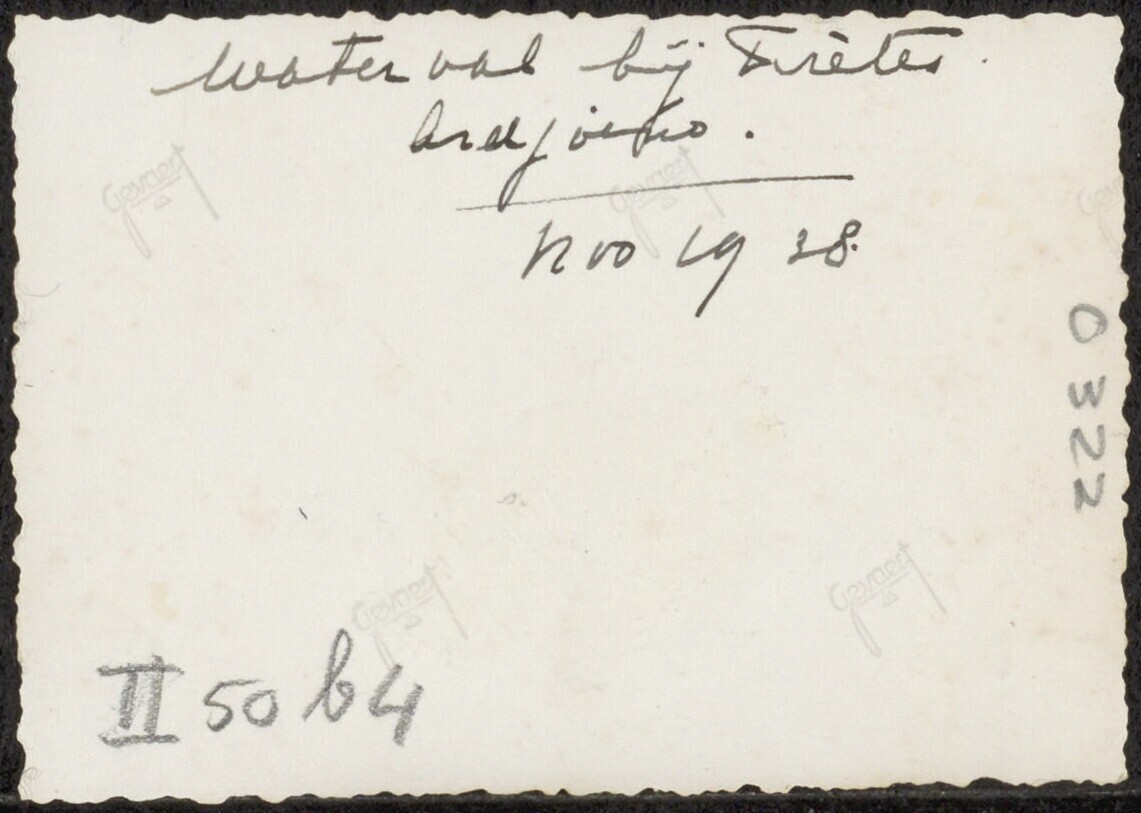 Waterval bij Trètes.
Ardjoeno.
Nov 1938.
0322
II 50 b4
Gevaert
Gevaert
Gevaert
Gevaert